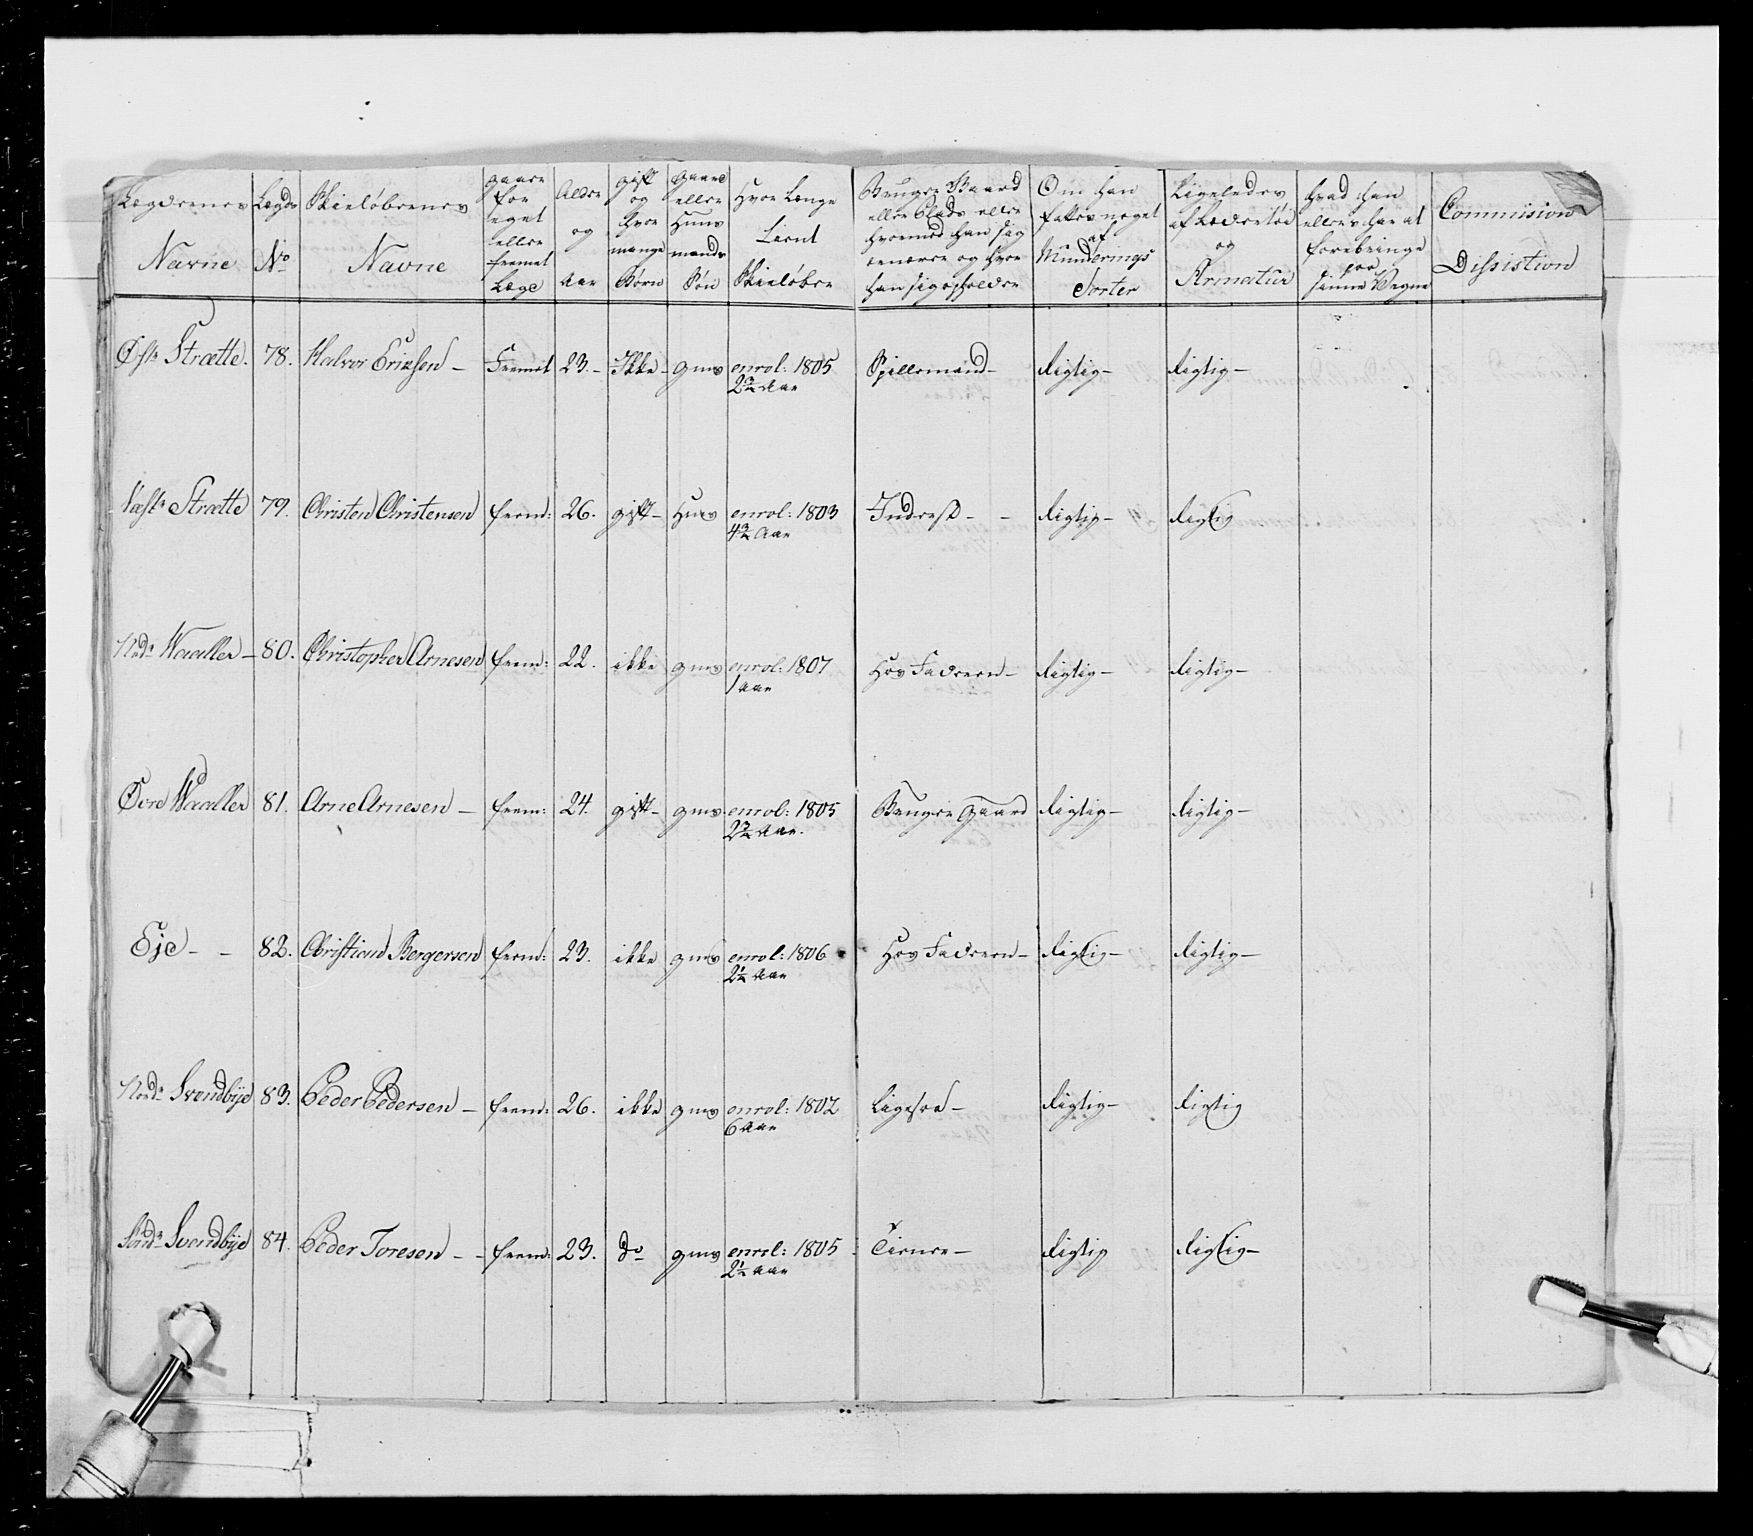 Lægdernes Navne | Lægds No | Skieløbernes Navne | gaaer for eget eller fremet Læge | Alder og Aar | gift og hvor mange Børn | gaard eller Huus mands Søn | Hvor Længe tient Skieløber | Bruger Gaard eller Plads eller hvormed han sig ernærer og hvor han sig opholder | Om han fattes noget af Munderings Sorter | Ligeledes af Lædertøi og Armatur | hvad han ellers har at forebringe paa sinne Vegne | Commision Dissistion
Østr Strætte. | 78. | Halvor Erichsen – | Fremet | 23. – | Ikke – | gms | enrol: 1805 2 3/4 Aar | Spillemand – | Rigtig – | Rigtig –
Væstr Strætte | 79. | Christen Christensen | frem: | 26. | gift – | Huus | enrol: 1803 4 3/4 Aar | Inderst – – | Rigtig – | Rigtig
Nedr Waaller – | 80. | Christopher Arnesen | frem: | 22. | ikke | gms | enrol: 1807 1 Aar | Hos Faderen – | Rigtig – | Rigtig –
Øvre Waaller | 81. | Arne Arnesen – | frem: | 24. | gift – | gms | enrol: 1805 2 3/4 Aar. | Bruger gaard | Rigtig – | Rigtig –
Eje – – | 82. | Christian Bergersen | frem: | 23. | ikke | gms | enrol: 1806 2 1/4 Aar | Hos Faderen – | Rigtig – | Rigtig –
Nordr Svendbye | 83. | Peder Pedersen – | frem: | 26. | ikke | gms | enrol: 1802 6 Aar | Ligesaa – | Rigtig – | Rigtig
Søndr Svendbye | 84. | Peder Toresen – – | frem: | 23. | do | gms | enrol: 1805 2 1/4 Aar | Tiener – | Rigtig | Rigtig –